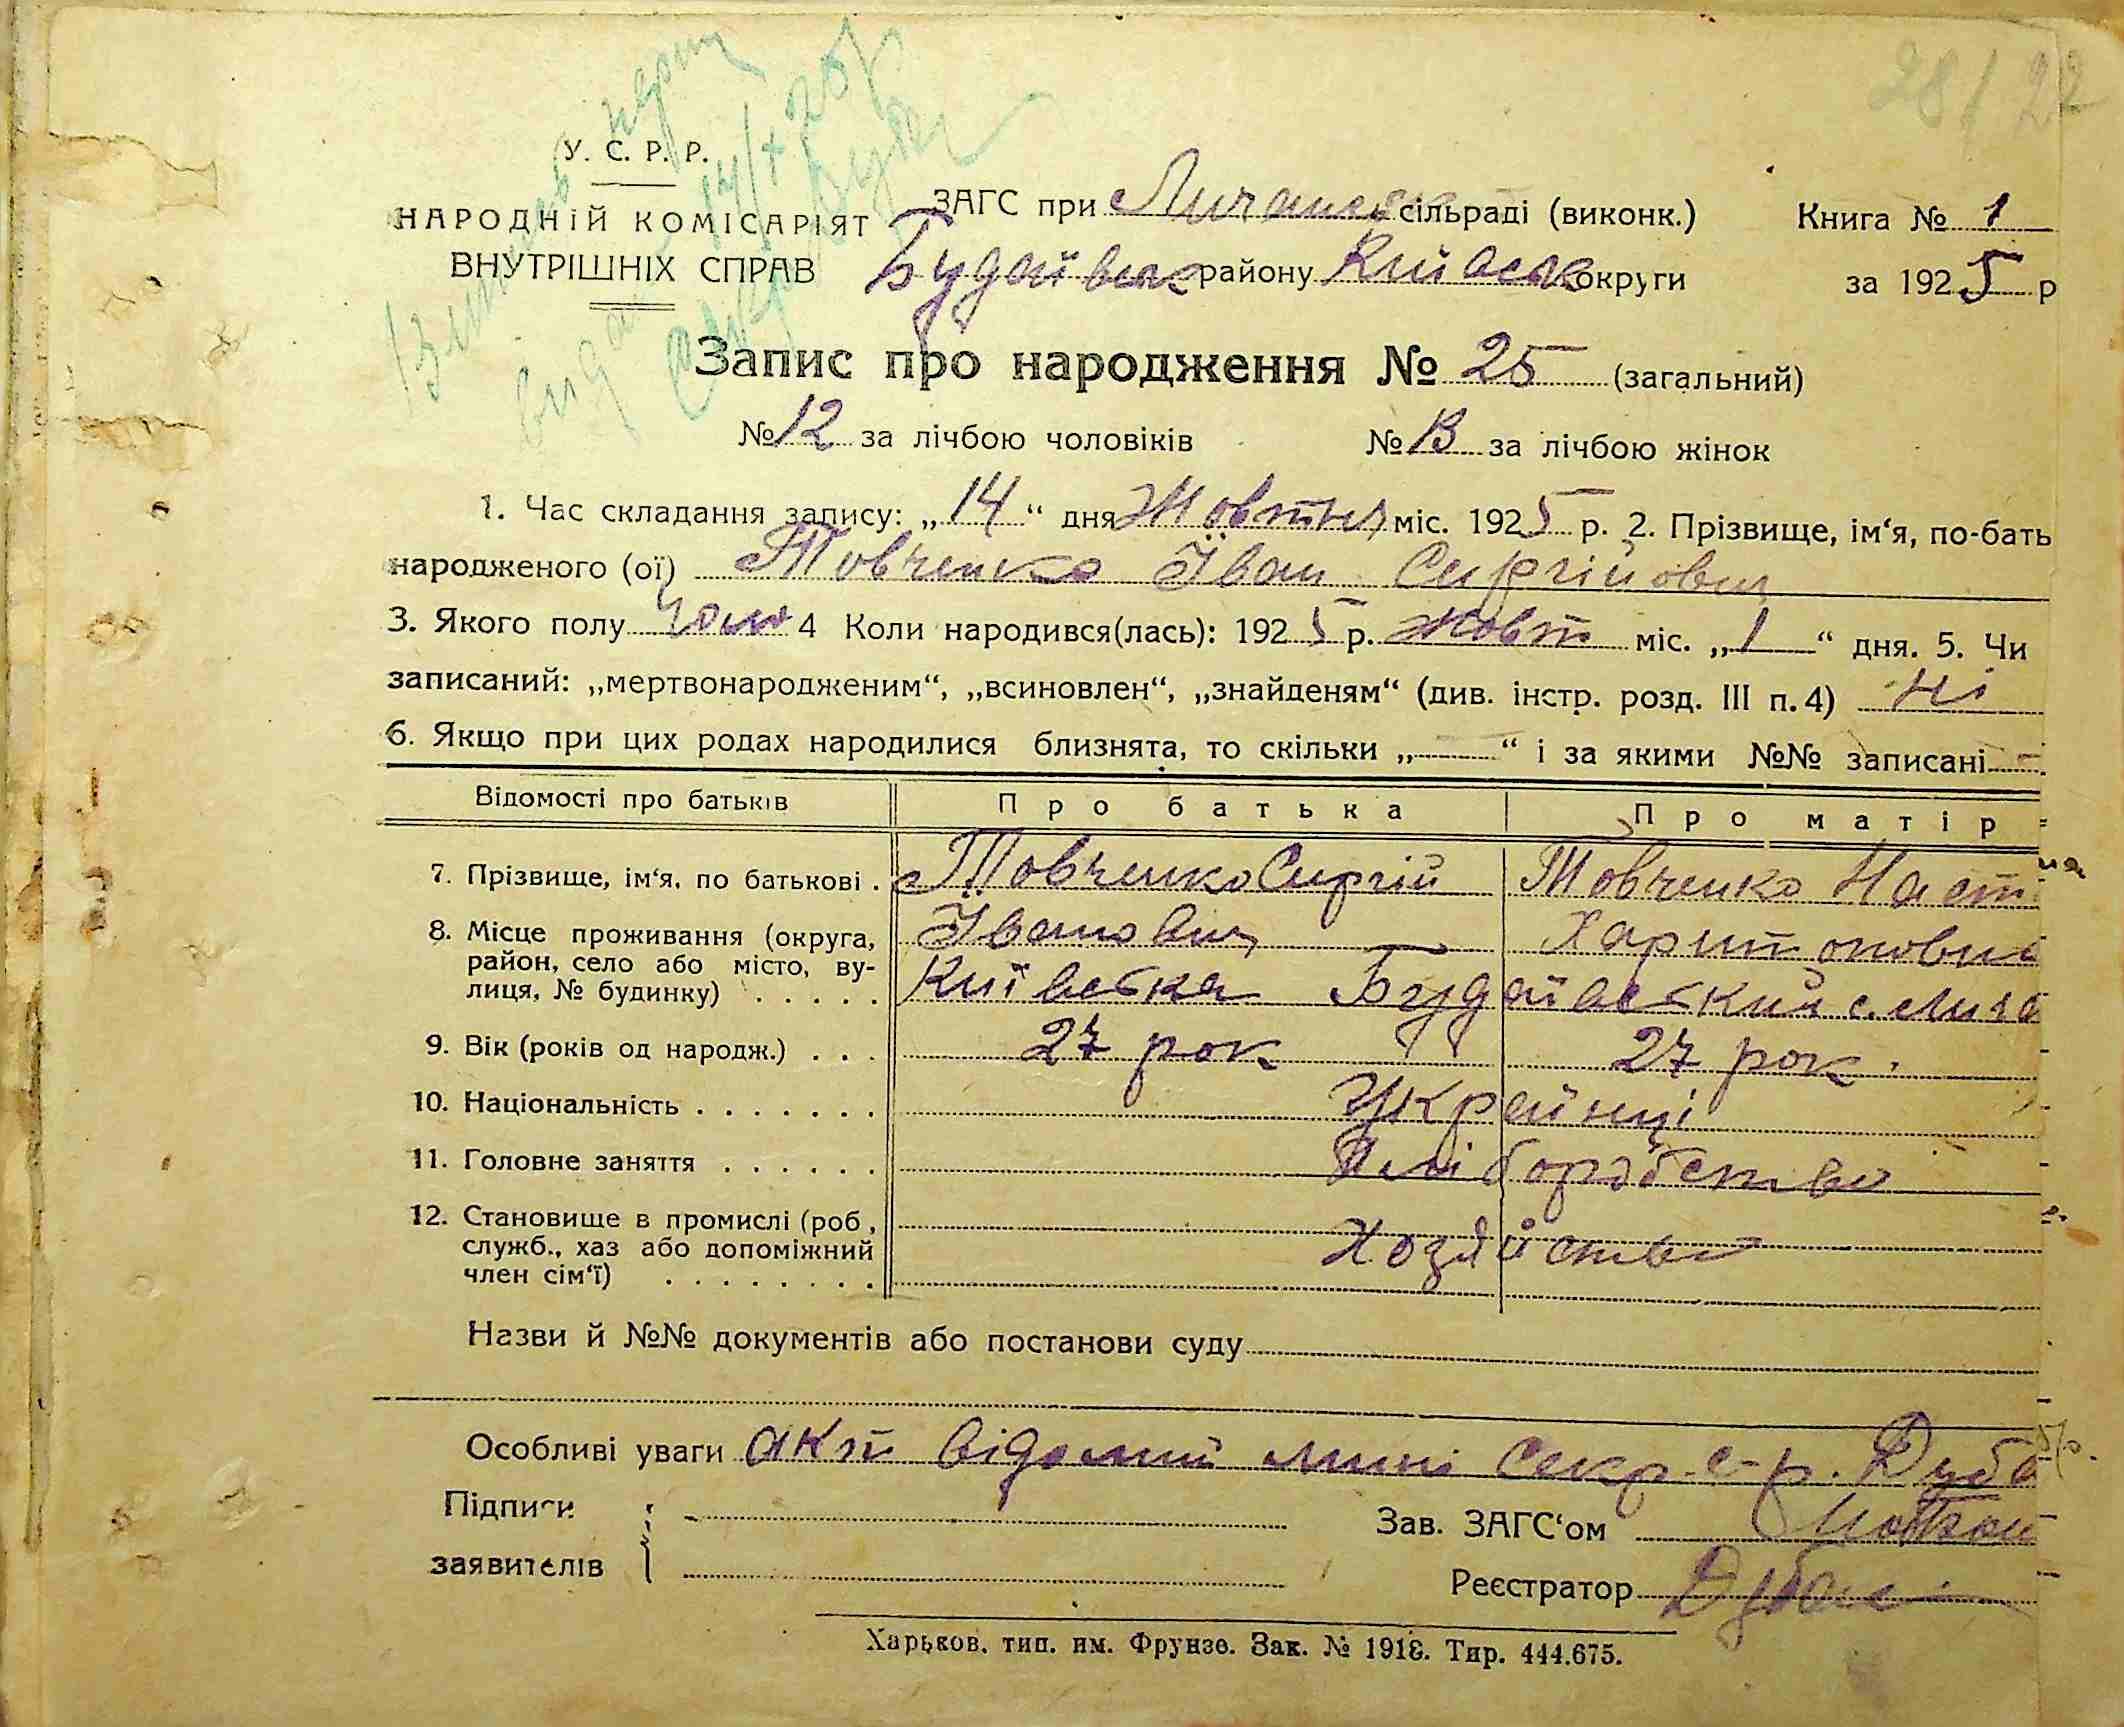 28/22
У. С. Р. Р.
НАРОДНІЙ КОМІСАРІЯТ
ВНУТРІШНІХ СПРАВ
ЗАГС при Личанськ сільраді (виконк.)
Будаївськ району Київськ округи
Книга № 1
за 1925 р
Запис про народження № 25 (загальний)
№ 12 за лічбою чоловіків № 13 за лічбою жінок
1. Час складання запису: „14“ дня Жовтня міс. 1925 р. 2. Прізвище, ім‘я, по-бать
народженого (ої) Товченко Їван Сиргійович
3. Якого полу чоло 4 Коли народився(лась): 1925 р. жовт міс. „1“ дня. 5. Чи
записаний: „мертвонародженим“, „всиновлен“, „знайденям“ (див. інстр. розд. III п. 4) ні
6. Якщо при цих родах народилися близнята, то скільки „—“ і за якими №№ записані —
Відомості про батьків Про батька Про матір
7. Прізвище, ім‘я, по батькові . Товченко Сиргій Товченко Наст
Їванович Харитоновна
8. Місце проживання (округа,
район, село або місто, ву-
лиця, № будинку) . . . . . Київська Будаївський с. Лича
9. Вік (років од народж.) . . . 27 рок 27 рок.
10. Національність . . . . . . . Українці
11. Головне заняття . . . . . . Хліборобство
12. Становище в промислі (роб,
служб., хаз або допоміжний
член сім‘ї) . . . . . . . . Хозяйство
Назви й №№ документів або постанови суду
Особливі уваги акт відомий мині Секр. с-р. Дуба
Підписи
заявителів
Зав. ЗАГС‘ом
Реєстратор Дубас
Харьков, тип. им. Фрунзе. Зак. № 1918. Тир. 444.675.